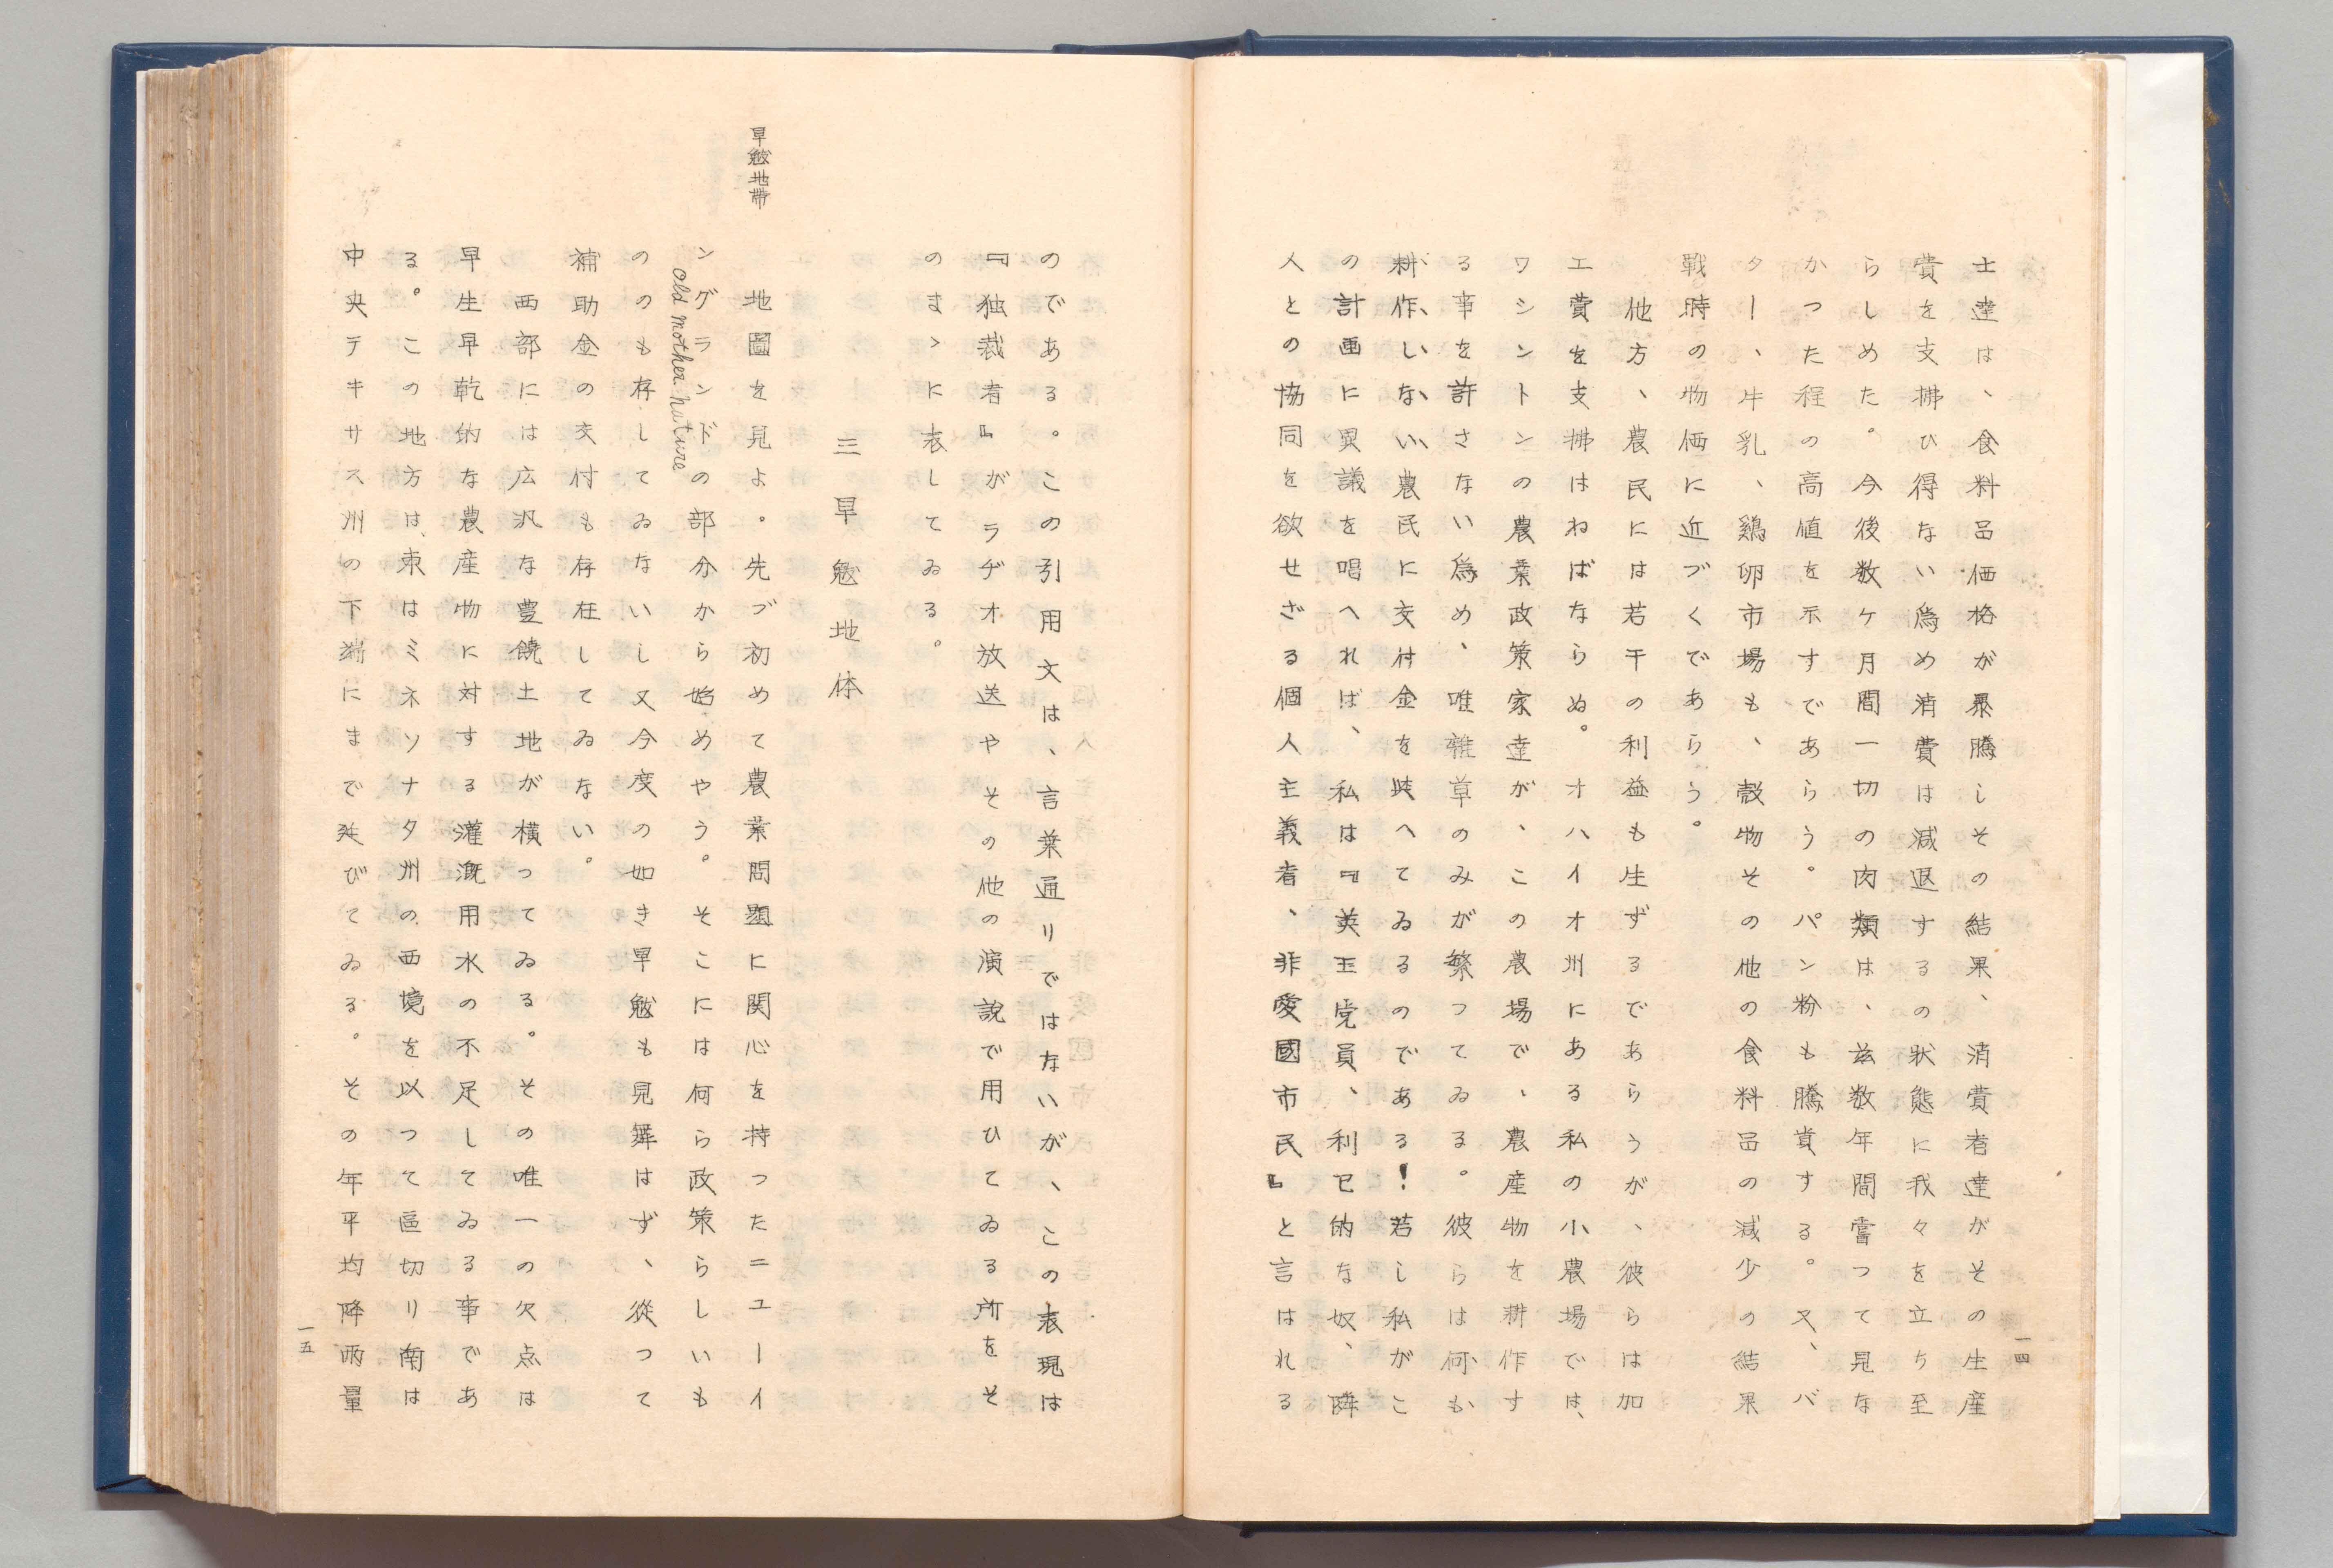 士達は、食料品価格が暴騰しその結果、消費者達がその生産
費を支拂ひ得ない為め消費は減退するの状態に我々を立ち至
らしめた。今後数ヶ月間一切の肉類は、玆数年間嘗つて見な
かつた程の高値を示すであらう。パン粉も騰貴する。又、バ
ター、牛乳、鶏卵市場も、穀物その他の食料品の減少の結果
戦時の物価に近づくであらう。
他方、農民には若干の利益も生ずるであらうが、彼らは加
工費を支拂はねばならぬ。オハイオ州にある私の小農場では、
ワシントンの農業政策家達が、この農場で、農産物を耕作す
る事を許さない為め、唯雑草のみが繁つてゐる。彼らは何も
耕作しない農民に交付金を與へてゐるのである!若し私がこ
の計画に異議を唱へれば、私は『英王党員、利己的な奴、隣
人との協同を欲せざる個人主義者、非愛國市民』と言はれる
一四
のである。この引用文は、言葉通りではないが、この表現は
『独裁者』がラヂオ放送やその他の演説で用ひてゐる所をそ
のまゝに表してゐる。
三 旱魃地体
旱魃地帯
地圖を見よ。先づ初めて農業問題に関心を持ったニューイ
ングランドの部分から始めやう。そこには何ら政策らしいも
old mother nature
のも存してゐないし又今度の如き旱魃も見舞はず、從つて
補助金の交付も存在してゐない。
西部には広汎な豊饒土地が横ってゐる。その唯一の欠点は
早生早乾的な農産物に対する灌漑用水の不足してゐる事であ
る。この地方は、東はミネソナタ州の西境を以つて區切り南は
中央テキサス州の下端にまで延びてゐる。その年平均降雨量
一五